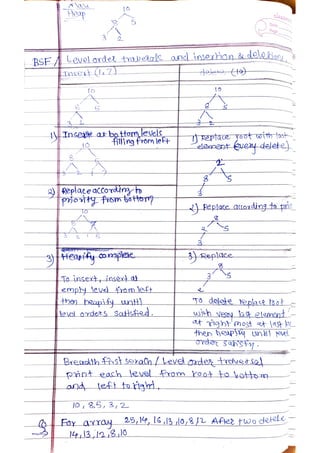 Max
Heap
10
8 5
3 2
BSF / Level order traversals and insertion & deletion
Insert (1,7)
delete (10)
10
8 5
3 2
10
8 5
3 2
1) Insert at bottom levels
filling from left
10
8 5
3 2 1
1) Replace root with last
element (every delete)
2
8 5
3
2) Replace according to
priority from bottom
10
2) Replace according to
8
2 5
3
3) Heapify complete
3) Replace
8
3 5
2
To insert, insert at
empty level from left
then heapify until
level orders satisfied.
To delete replace root
with very last element
at right most at last
then heapify until
order satisfy.
Breadth first search / Level order traversal
print each level from root to bottom
and left to right.
10, 8 5, 3, 2
Q For array 25, 14, 16, 13, 10, 8, 12 After two delete
14, 13, 12, 8, 10